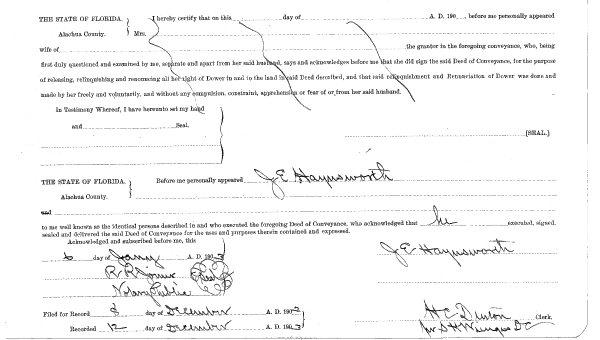 THE STATE OF FLORIDA. I hereby certify that on this day of A. D. 190 , before me personally appeared
Alachua County. Mrs.
wife of the grantor in the foregoing conveyance, who, being
first duly questioned and examined by me, separate and apart from her said husband, says and acknowledges before me that she did sign the said Deed of Conveyance, for the purpose
of releasing, relinquishing and renouncing all her right of Dower in and to the land in said Deed described, and that said relinquishment and Renunciation of Dower was done and
made by her freely and voluntarily, and without any compulsion, constraint, apprehension or fear of or from her said husband.
In Testimony Whereof, I have hereunto set my hand
and Seal.
[SEAL.]
THE STATE OF FLORIDA. Before me personally appeared J E Haynsworth
Alachua County.
and
to me well known as the identical persons described in and who executed the foregoing Deed of Conveyance, who acknowledged that he executed, signed,
sealed and delivered the said Deed of Conveyance for the uses and purposes therein contained and expressed.
Acknowledged and subscribed before me, this
6 day of Jany A. D. 190
J E Haynsworth
R. R.
Notary Public
Filed for Record 8 day of December A. D. 190
H C Denton Clerk,
Recorded 12 day of December A. D. 190
D C